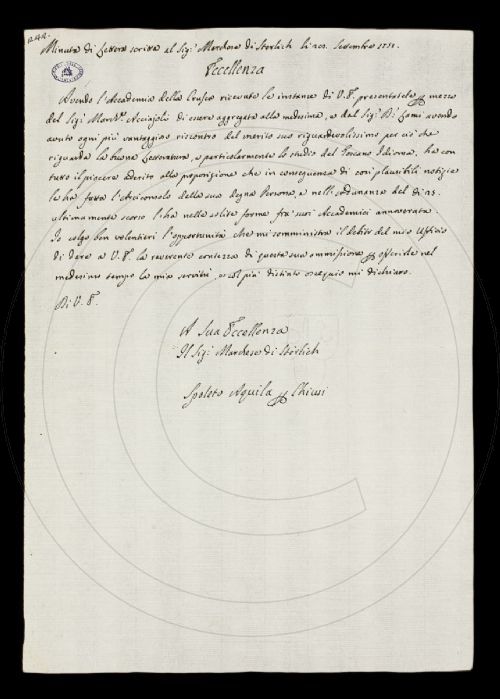 Minuta di Lettera scritta al Sig.r Marchese di Sterlich li 20. Settembre 1751.
Eccellenza
Avendo l'Accademia della Crusca ricevuto le instanze di V. E. presentatele per mezzo
del Sig.r March.e Acciajoli di essere aggregato alla medesima, e dal Sig.r D.r Lami avendo
avuto ogni più vantaggioso riscontro del merito suo riguardevolissimo per ciò che
riguarda la buona Letteratura, e particolarmente lo studio del Toscano Idioma, ha con
tutto il piacere aderito alla proposizione che in conseguenza di così plausibili notizie
le ha fatta l'Arciconsolo della sua degna Persona, e nell'adunanza del dì
ultimamente scorso l'ha nelle solite forme fra' suoi Accademici annoverata.
Io colgo ben volentieri l'opportunità che mi somministra il debito del mio Uffizio
di dare a V. E. la reverente contezza di questa sua ammissione per offerirle nel
medesimo tempo la mia servitù, e col più distinto ossequio mi dichiaro.
Di V. E.
A Sua Eccellenza
Il Sig.r Marchese di Sterlich
Spoleto Aquila per Chieti